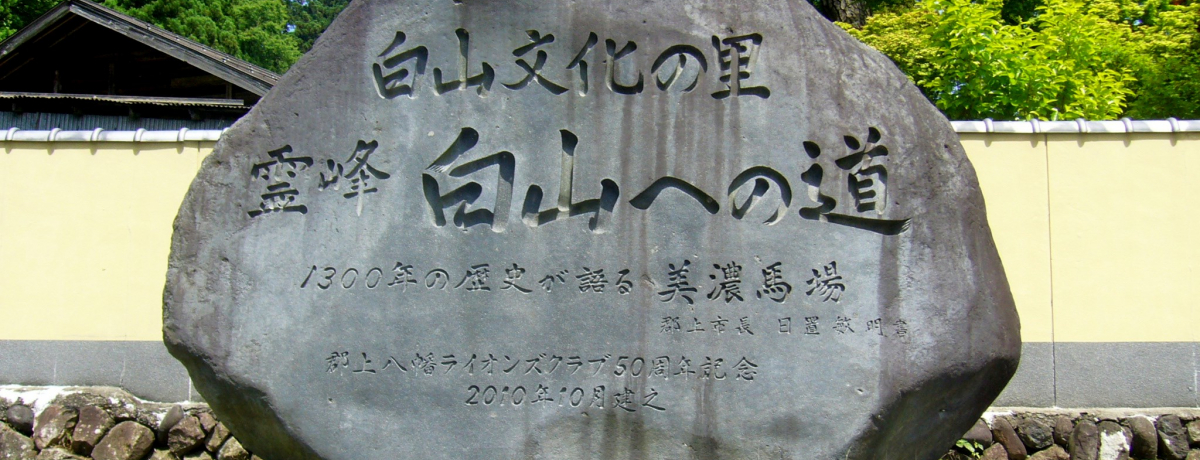 白山文化の里
霊峰 白山への道
1300年の歴史が語る 美濃馬場
郡上市長 日置敏明書
郡上八幡ライオンズクラブ50周年記念
2010年10月建之